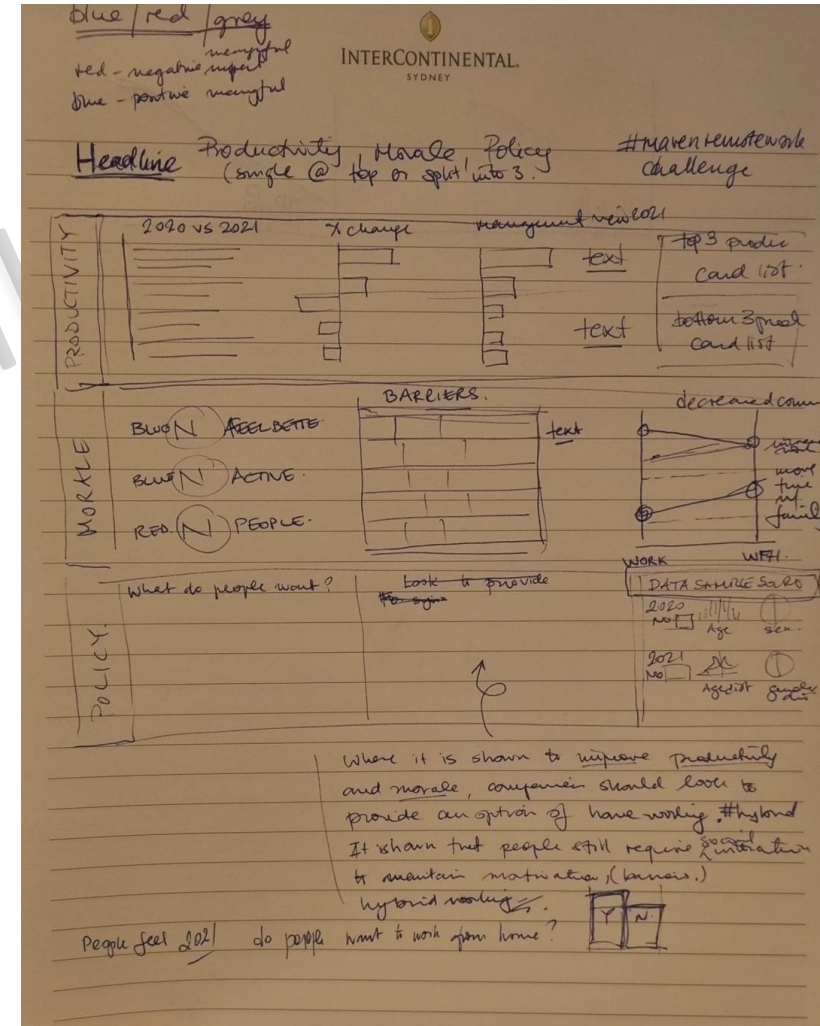 blue / red / grey
meaningful
red - negative impact
blue - positive meaningful
1
INTERCONTINENTAL.
SYDNEY
Headline Productivity, Morale, Policy
(single @ top or split into 3.
#mavenremotework
challenge
PRODUCTIVITY
2020 VS 2021
% change
management view 2021
text
text
top 3 produc
card list.
bottom 3 prod
card list
MORALE
BLUE N FEEL BETTE
BLUE N ACTIVE.
RED. N PEOPLE.
BARRIERS.
text
decreased comm
more
time
w/
family
WORK WFH.
POLICY.
What do people want?
Look to provide
DATA SAMPLE
2020
NO
Age
sex.
2021
NO
Age dist
gender
Where it is shown to improve productivity
and morale, companies should look to
provide an option of home working. #hybrid
It is shown that people still require social interaction
to maintain motivation, (barriers.)
hybrid working
Y N.
People feel 2021 do people want to work from home?